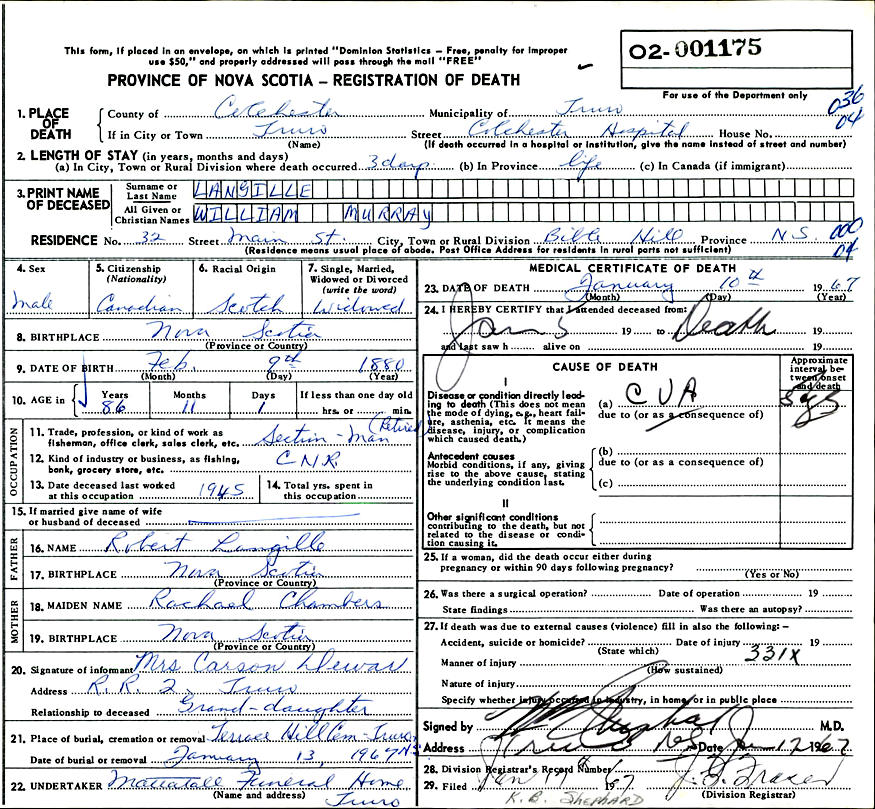 This form, if placed in an envelope, on which is printed "Dominion Statistics – Free, penalty for improper
use $50," and properly addressed will pass through the mail "FREE"
02-001175
PROVINCE OF NOVA SCOTIA – REGISTRATION OF DEATH
For use of the Department only
036
04
1. PLACE OF DEATH County of Colchester Municipality of Truro
If in City or Town Truro Street Colchester Hospital House No.
(Name) (If death occurred in a hospital or institution, give the name instead of street and number)
2. LENGTH OF STAY (in years, months and days)
(a) In City, Town or Rural Division where death occurred 3 days (b) In Province life (c) In Canada (if immigrant)
3. PRINT NAME OF DECEASED Surname or Last Name LANGILLE
All Given or Christian Names WILLIAM MURRAY
RESIDENCE No. 32 Street Main St. City, Town or Rural Division Bible Hill Province N.S. 000
(Residence means usual place of abode. Post Office Address for residents in rural parts not sufficient) 04
4. Sex Male
5. Citizenship (Nationality) Canadian
6. Racial Origin Scotch
7. Single, Married, Widowed or Divorced (write the word) Widowed
8. BIRTHPLACE Nova Scotia
(Province or Country)
9. DATE OF BIRTH Feb. 9th 1880
(Month) (Day) (Year)
10. AGE in Years 86 Months 11 Days 1 If less than one day old hrs. or min.
OCCUPATION
11. Trade, profession, or kind of work as fisherman, office clerk, sales clerk, etc. Section-Man (Retired)
12. Kind of industry or business, as fishing, bank, grocery store, etc. C.N.R.
13. Date deceased last worked at this occupation 1945
14. Total yrs. spent in this occupation
15. If married give name of wife or husband of deceased
FATHER
16. NAME Robert Langille
17. BIRTHPLACE Nova Scotia
(Province or Country)
MOTHER
18. MAIDEN NAME Rachael Chambers
19. BIRTHPLACE Nova Scotia
(Province or Country)
20. Signature of informant Mrs Carson Dewar
Address R.R. 2, Truro
Relationship to deceased Grand-daughter
21. Place of burial, cremation or removal Terrace Hill Cem-Truro NS
Date of burial or removal January 13, 1967
22. UNDERTAKER Mattatall Funeral Home
(Name and address) Truro
MEDICAL CERTIFICATE OF DEATH
23. DATE OF DEATH January 10th 1967
(Month) (Day) (Year)
24. I HEREBY CERTIFY that I attended deceased from:
Jan 5 19 to Death 19
and last saw h alive on 19
CAUSE OF DEATH
Approximate interval between onset and death
I
Disease or condition directly leading to death (This does not mean the mode of dying, e.g., heart failure, asthenia, etc. It means the disease, injury, or complication which caused death.)
(a) CVA
due to (or as a consequence of)
Antecedent causes
Morbid conditions, if any, giving rise to the above cause, stating the underlying condition last.
(b)
due to (or as a consequence of)
(c)
II
Other significant conditions
contributing to the death, but not related to the disease or condition causing it.
25. If a woman, did the death occur either during pregnancy or within 90 days following pregnancy?
(Yes or No)
26. Was there a surgical operation? Date of operation 19
State findings Was there an autopsy?
27. If death was due to external causes (violence) fill in also the following:–
Accident, suicide or homicide? Date of injury 19
(State which) 331X
Manner of injury
(How sustained)
Nature of injury
Specify whether injury occurred in industry, in home, or in public place
Signed by M.D.
Address Truro NS Date Jan 12 1967
28. Division Registrar's Record Number
29. Filed Jan 17th 1967 J. B. Fraser
(Division Registrar)
K. B. SHEPHARD